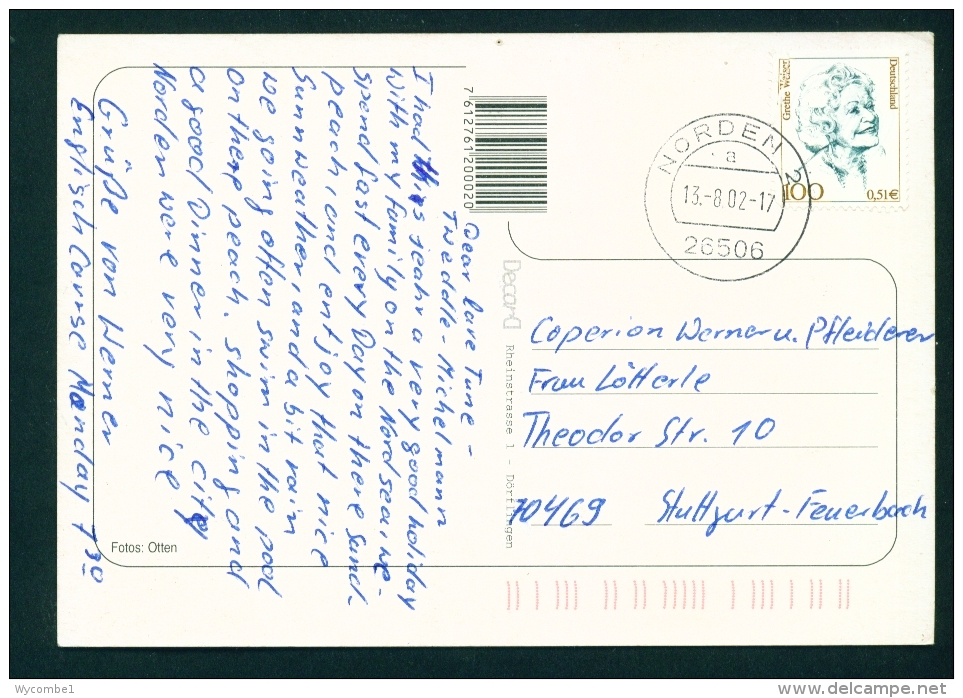 Dear lave Tune -
Tweddle - Michelmann
I had this jeahr a very good holiday
with my family on the Nordsea, we -
spend fast every Day on there sand -
peach, and entjoy that nice
Sunnweather, and a bit rain
we going often swim in the pool
on there peach. shopping and
a good Dinner in the city
Norden were very nice
Grüße von Werner
Englisch Course Monday 7 30
Fotos: Otten
7 612761 200020
Decard Rheinstrasse 1 - Dörflingen
Grethe Weiser
Deutschland
100
0,51€
NORDEN 2
a
13.-8.02-17
26506
Coperion Werner u. Pfleiderer
Frau Lötterle
Theodor Str. 10
70469 Stuttgart-Feuerbach
Wycombe1
www.delcampe.net